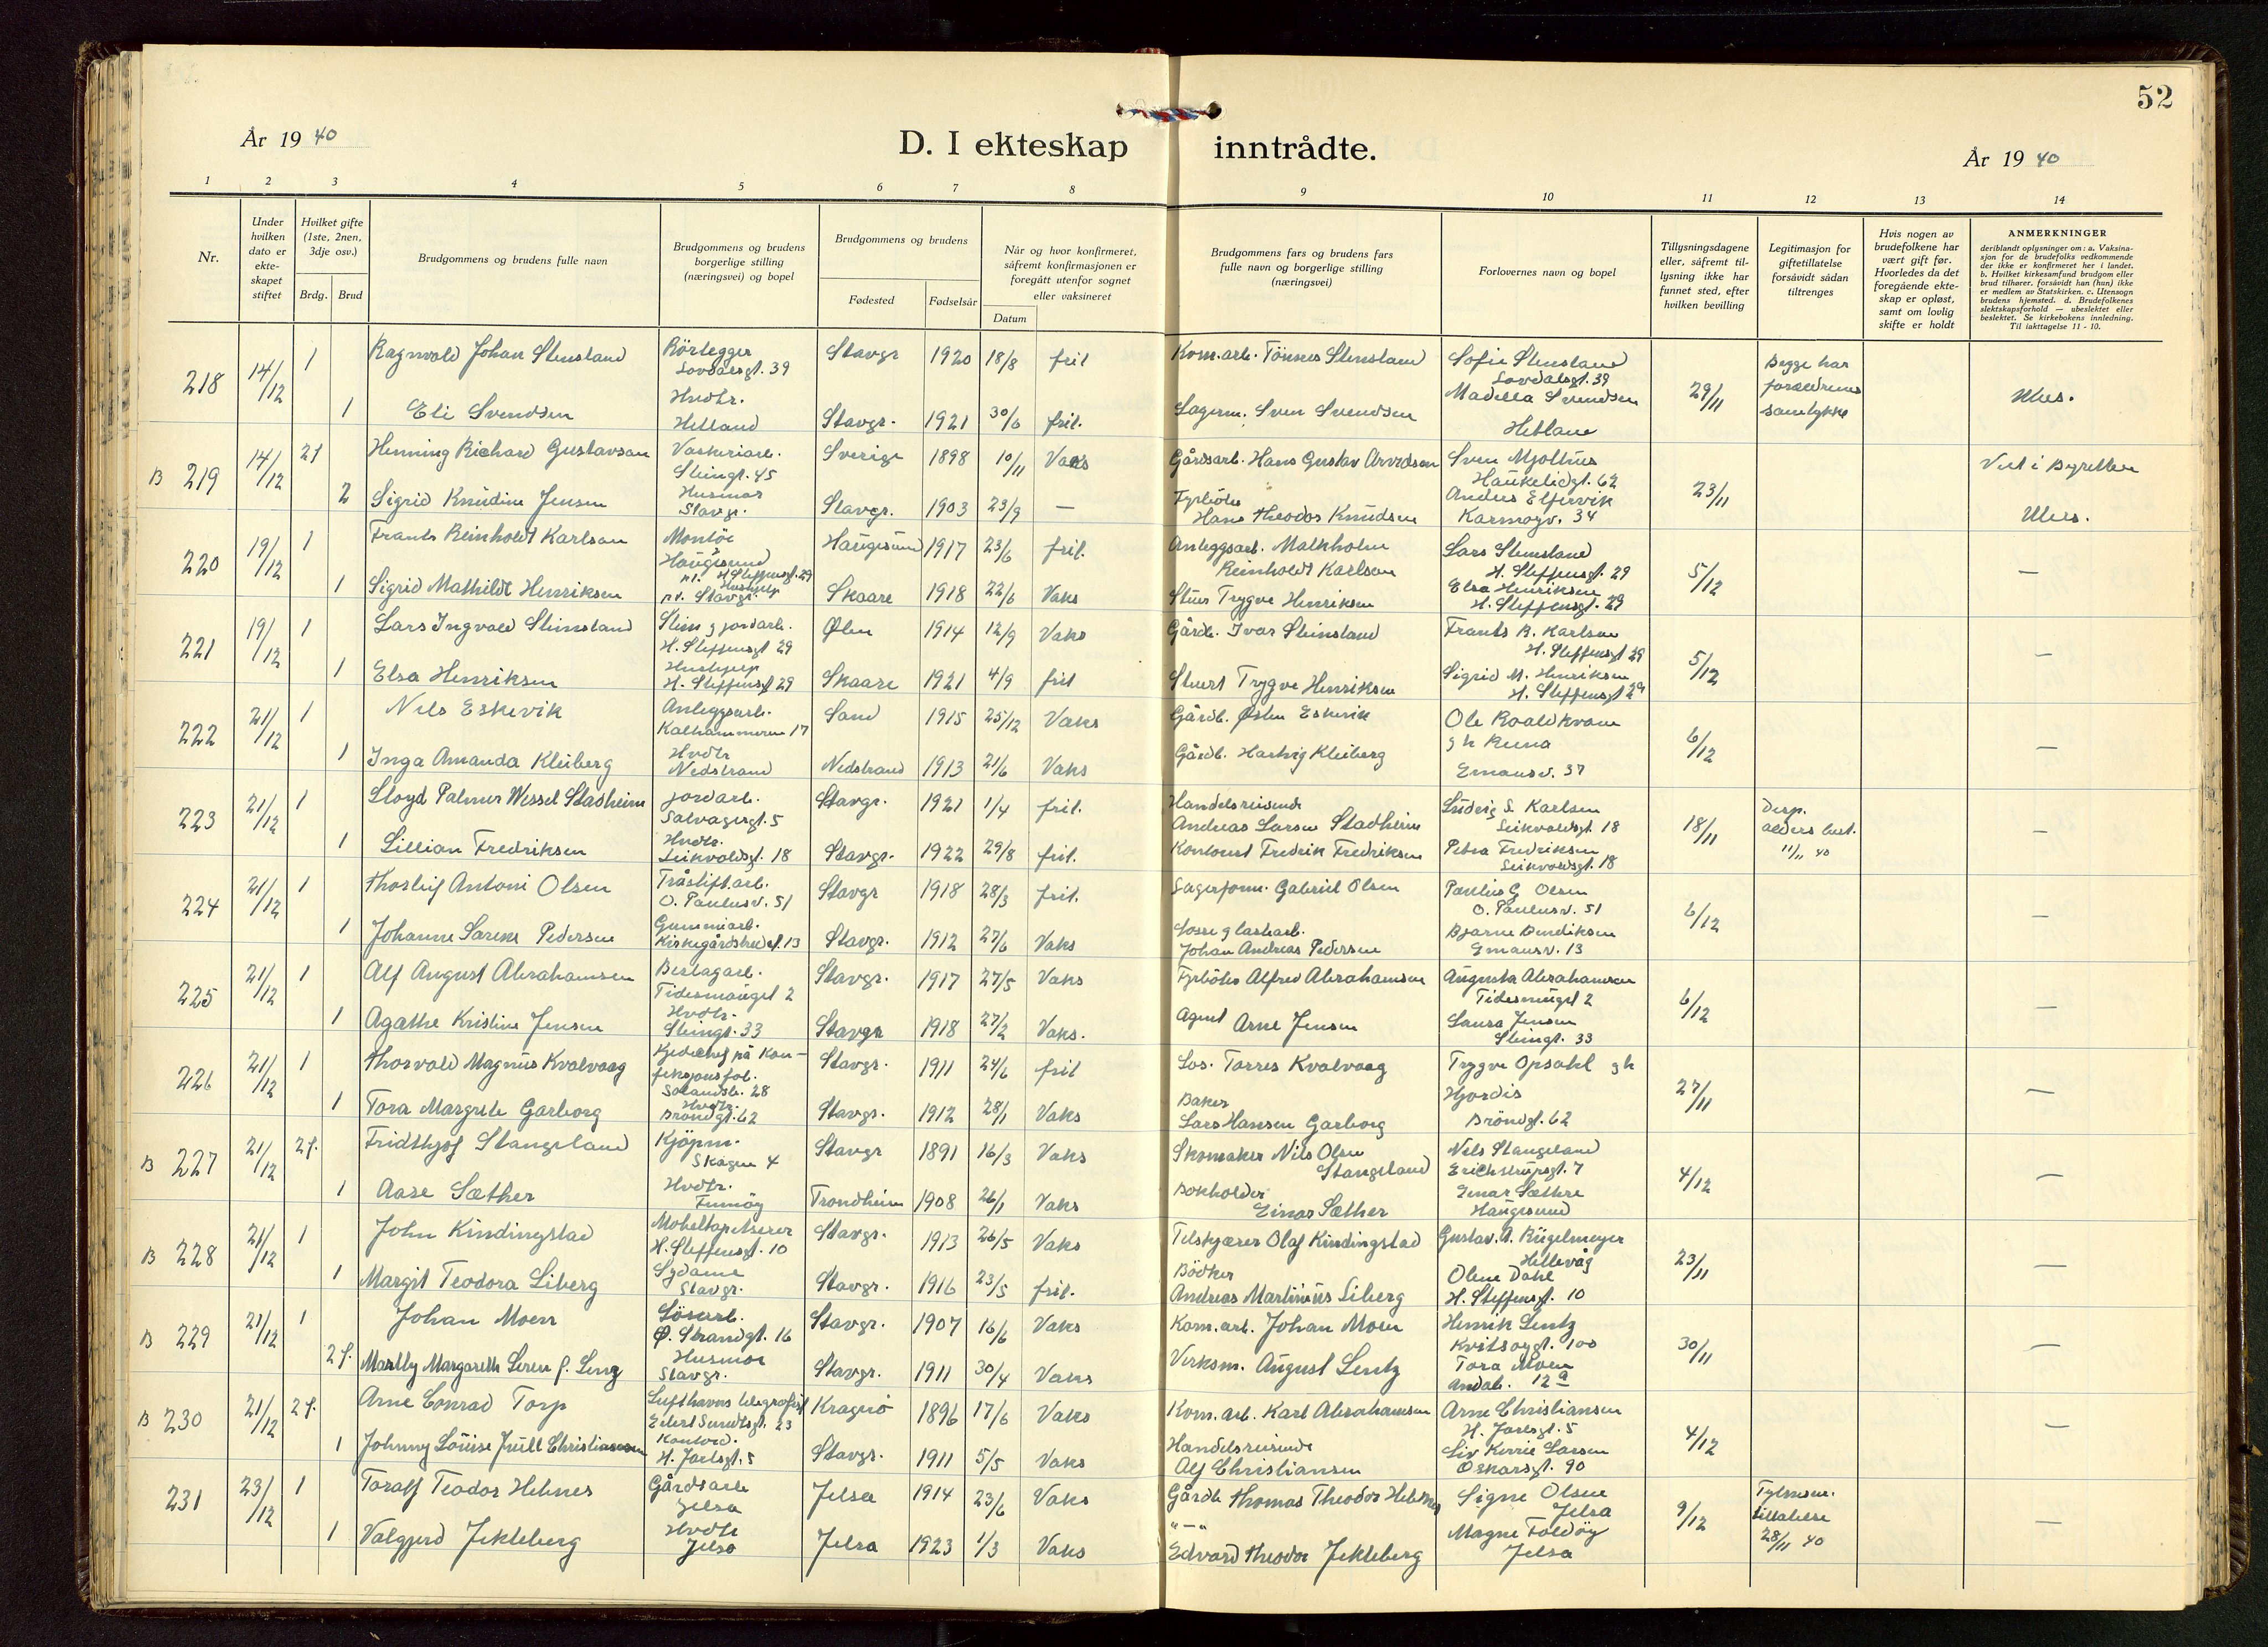 52
År 1940
D. I ekteskap inntrådte.
År 1940
1 2 3 4 5 6 7 8 9 10 11 12 13 14
Nr.
Under hvilken dato er ekte- skapet stiftet
Hvilket gifte (1ste, 2nen, 3dje osv.)
Brdg. Brud
Brudgommens og brudens fulle navn
Brudgommens og brudens borgerlige stilling (næringsvei) og bopel
Brudgommens og brudens
Fødested Fødselsår
Når og hvor konfirmeret, såfremt konfirmasjonen er foregått utenfor sognet eller vaksineret
Datum
Brudgommens fars og brudens fars fulle navn og borgerlige stilling (næringsvei)
Forlovernes navn og bopel
Tillysningsdagene eller, såfremt til- lysning ikke har funnet sted, efter hvilken bevilling
Legitimasjon for giftetillatelse forsåvidt sådan tiltrenges
Hvis nogen av brudefolkene har vært gift før. Hvorledes da det foregående ekte- skap er opløst, samt om lovlig skifte er holdt
ANMERKNINGER
deriblandt oplysninger om: a. Vaksina- sjon for de brudefolks vedkommende der ikke er konfirmeret her i landet. b. Hvilket kirkesamfund brudgom eller brud tilhører, forsåvidt han (hun) ikke er medlem av Statskirken. c. Utensogn brudens hjemsted. d. Brudefolkenes slektskapsforhold — ubeslektet eller beslektet. Se kirkebokens innledning. Til iakttagelse 11 - 10.
218 14/12 1 Ragnvald Johan Stensland Rörlegger Lovdalsgt. 39 Stavgr 1920 18/8 fril Kom.arb. Tönnes Stensland Sofie Stensland Lovdalsgt. 39 29/11 Begge har foreldrenes samtykke
1 Eli Svendsen Hvdtr. Hetland Stavgr. 1921 30/6 fril. Lagerm. Sven Svendsen Svendsen Hetland
B 219 14/12 2f Henning Richard Gustavson Vaskeriarb. Steingt. 45 Sverige 1898 10/11 Vaks Gårdsarb. Hans Gustav Arvidson Sven Mjölhus Haukeligt. 62 23/11 Viet i Byretten
2 Sigrid Knudine Jensen Husmor Stavgr. Stavgr. 1903 23/9 — Fyrböter Hans Theodor Knudsen Karmøygt. 34
220 19/12 1 Frants Reinholdt Karlson Montör Haugesund p.t. H. Steffensgt. 29 Haugesund 1917 23/6 fril. Anleggsarb. Reinholdt Karlson Lars Stensland H. Steffensgt. 29 5/12 —
1 Sigrid Mathilde Henriksen Hushjelp p.t. Stavgr. Skaare 1918 22/6 Vaks Stuer Trygve Henriksen Elsa Henriksen H. Steffensgt. 29
221 19/12 1 Lars Ingvald Steinsland Stein g jordarb. H. Steffensgt 29 Ølen 1914 12/9 Vaks Gårdb. Ivar Steinsland Frants R. Karlson H. Steffensgt 29 5/12 —
1 Elsa Henriksen Hushjelp H. Steffensgt 29 Skaare 1921 4/9 fril Stuert Trygve Henriksen Sigrid M. Henriksen H. Steffensgt 29
222 21/12 1 Nils Eskevik Anleggsarb. Kalhammeren 17 Sand 1915 25/12 Vaks Gårdb. Østen Eskevik Ole Roaldkvam 6/12 —
1 Inga Amanda Kleiberg Hvdtr Nedstrand Nedstrand 1913 21/6 Vaks Gårdb. Hartvig Kleiberg g h Emausv. 37
223 21/12 1 Lloyd Palmer Wessel Stadheim jordarb. Salvagergt. 5 Stavgr. 1921 1/4 fril. Handelsreisende Andreas Larsen Stadheim Ludvig S. Karlsen Seikvoldsgt. 18 18/11 Disp. alders best. 11/11 40 —
1 Lillian Fredriksen Hvdtr. Seikvoldsgt. 18 Stavgr. 1922 29/8 fril. Kontorist Fredrik Fredriksen Petra Fredriksen Seikvoldsgt. 18
224 21/12 1 Thorleif Antoni Olsen O. Paulusv. 51 Stavgr 1918 28/3 fril. Lagerform. Gabriel Olsen Paulus G Olsen O. Paulusv. 51 6/12 —
1 Johanne Sarene Pedersen Gummiarb. 13 Stavgr. 1912 27/6 Vaks Losse g lastearb. Johan Andreas Pedersen Bjarne Bendiksen Emausv. 13
225 21/12 1 Alf August Abrahamsen Beslagarb. Tidemansgt 2 Stavgr. 1917 27/5 Vaks Fyrböter Alfred Abrahamsen Augusta Abrahamsen 2 6/12 —
1 Agathe Kristine Jensen Hvdtr. Steingt. 33 Stavgr 1918 27/2 Vaks. Agent Arne Jensen Laura Jensen Steingt. 33
226 21/12 1 Thorvald Magnus Kvalvaag på kon- feksjonsfab. 28 Stavgr. 1911 24/6 fril Los. Torres Kvalvaag Trygve Opsahl g h 27/11 —
1 Tora Margrete Garborg Hvdtr. Bröndgt. 62 Stavgr. 1912 28/1 Vaks Baker Lars Hansen Garborg Hjördis Bröndgt. 62
B 227 21/12 2f. Fridthjof Stangeland Kjöpm. Skagen 4 Stavgr 1891 16/3 Vaks Skomaker Nils Olsen Stangeland Nils Stangeland Erichstrupsgt. 7 4/12 —
1 Aase Sæther Hvdtr. Trondheim 1908 26/1 Vaks Bokholder Einar Sæther Einar Sæthre Haugesund
B 228 21/12 1 John Kindingstad Möbeltapetserer H. Steffensgt. 10 Stavgr. 1913 26/5 Vaks Tilskjærer Olaf Kindingstad Gustav. A. Rügelmeyer Hillevåg 23/11 —
1 Margit Teodora Liberg Sydame Stavgr. Stavgr. 1916 23/5 fril. Bödker Andreas Martinius Liberg Olene Dahl H. Steffensgt. 10
B 229 21/12 1 Johan Moen Lösarb. Ø. Strandgt. 16 Stavgr. 1907 16/6 Vaks Kom.arb. Johan Moen Henrik Lentz Kvitsøygt. 100 30/11 —
2f. Margareth f. Husmor Stavgr. Stavgr. 1911 30/4 Vaks Verksm. August Lentz Tora Moen 12a
B 230 21/12 2f. Arne Conrad Torp Lufthavns telegrafist Eilert Sundtsgt. 23 Kragerö 1896 17/6 Vaks Kom. arb. Karl Abrahamsen Arne Christiansen H. Jarlsgt. 5 4/12 —
1 Johnny Louise Juell Christiansen Kontord. H. Jarlsgt. 5 Stavgr. 1911 5/5 Vaks Handelsreisende Alf Christiansen Liv Larsen Oskarsgt. 90
231 23/12 1 Toralf Teodor Helmes Gårdsarb Jelsa Jelsa 1914 23/6 Vaks Gårdb Thomas Theodor Signe Olsen Jelsa 9/12 28/11 40 —
1 Valgjerd Jekleberg Hvdtr Jelsa Jelsa 1923 1/3 Vaks "—" Edvard Theodor Jekleberg Magne Foldøy Jelsa